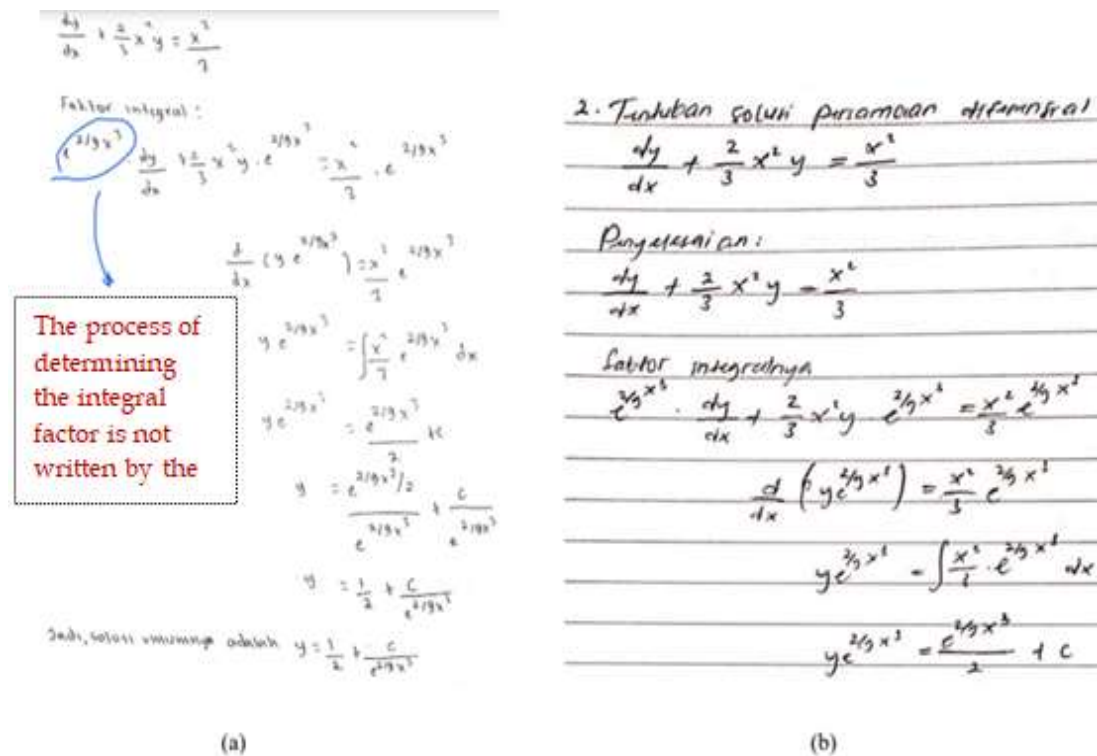 dy/dx + 2/3 x² y = x²/3
Faktor integral :
e^{2/9x³} · dy/dx + 2/3 x² y · e^{2/9x³} = x²/3 · e^{2/9x³}
d/dx (y e^{2/9x³}) = x²/3 e^{2/9x³}
y e^{2/9x³} = ∫ x²/3 e^{2/9x³} dx
y e^{2/9x³} = e^{2/9x³}/2 +c
y = e^{2/9x³}/2 / e^{2/9x³} + c/e^{2/9x³}
y = 1/2 + c/e^{2/9x³}
Jadi, solusi umumnya adalah y = 1/2 + c/e^{2/9x³}
The process of
determining
the integral
factor is not
written by the
(a)
2. Tentukan solusi persamaan diferensial
dy/dx + 2/3 x² y = x²/3
Penyelesaian :
dy/dx + 2/3 x² y = x²/3
faktor integralnya
e^{2/9 x³} · dy/dx + 2/3 x² y e^{2/9 x³} = x²/3 e^{2/9 x³}
d/dx (y e^{2/9 x³}) = x²/3 e^{2/9 x³}
y e^{2/9 x³} = ∫ x²/3 · e^{2/9 x³} dx
y e^{2/9 x³} = e^{2/9 x³}/2 + c
(b)